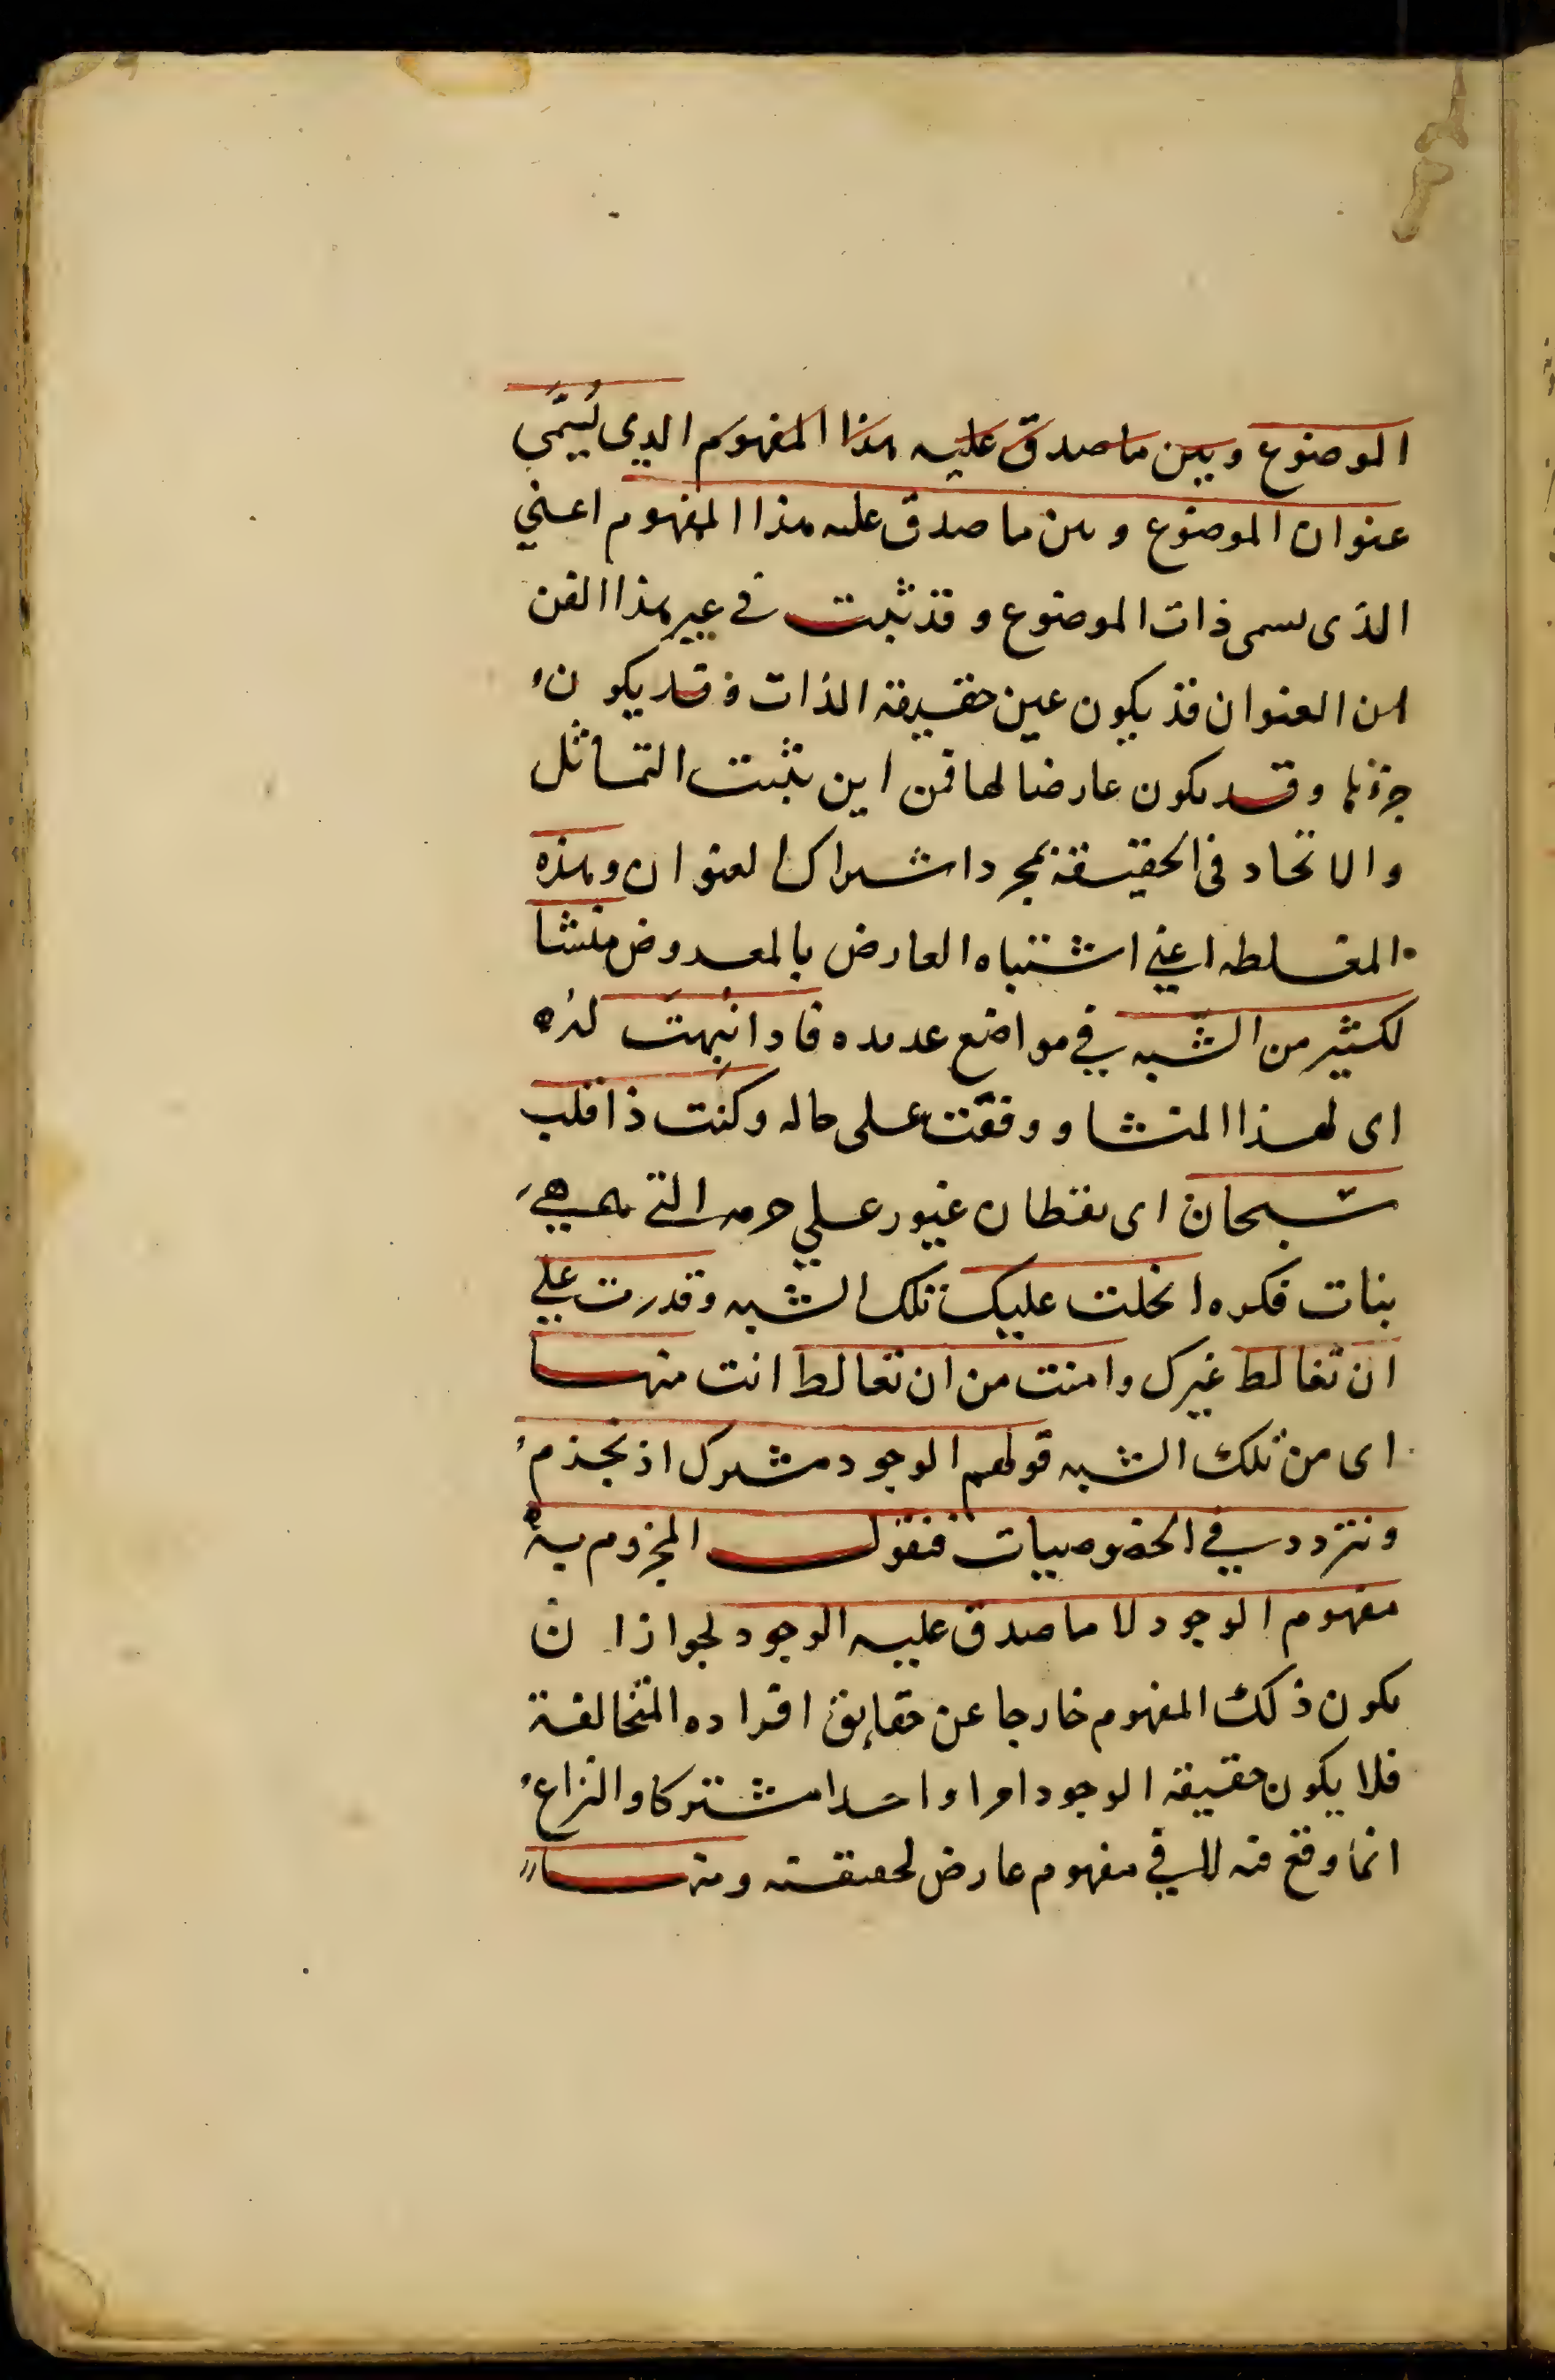 الموضوع وبين ما صدق عليه هذا المفهوم الذى يسمى
عنوان الموضوع وبين ما صدق عليه هذا المفهوم اعني
الذى يسمى ذات الموضوع وقد ثبت في غير هذا الفن
ان العنوان قد يكون عين حقيقة الذات وقد يكون
جزءها وقد يكون عارضا لها فمن اين يثبت التماثل
والاتحاد في الحقيقة بمجرد اشتراك العنوان وهذه
المغلطه اعني اشتباه العارض بالمعروض منشا
لكثير من الشبه في مواضع عديده فاذا انتبهت له
اى لهذا المنشا ووقفت على حاله وكنت ذا قلب
شيحان اى يقظان غيور على حرمه التي هي
بنات فكره انجلت عليك تلك الشبه وقدرت على
ان تغالط غيرك وامنت من ان تغالط انت منها
اى من تلك الشبه قولهم الوجود مشترك اذ نجزم
ونتردد في الخصوصيات فنقول المجزوم به
مفهوم الوجود لا ما صدق عليه الوجود لجواز ان
يكون ذلك المفهوم خارجا عن حقايق افراده المتخالفة
فلا يكون حقيقة الوجود امرا واحدا مشتركا والنزاع
انما وقع فيه لا في مفهوم عارض لحقيقته ومنها